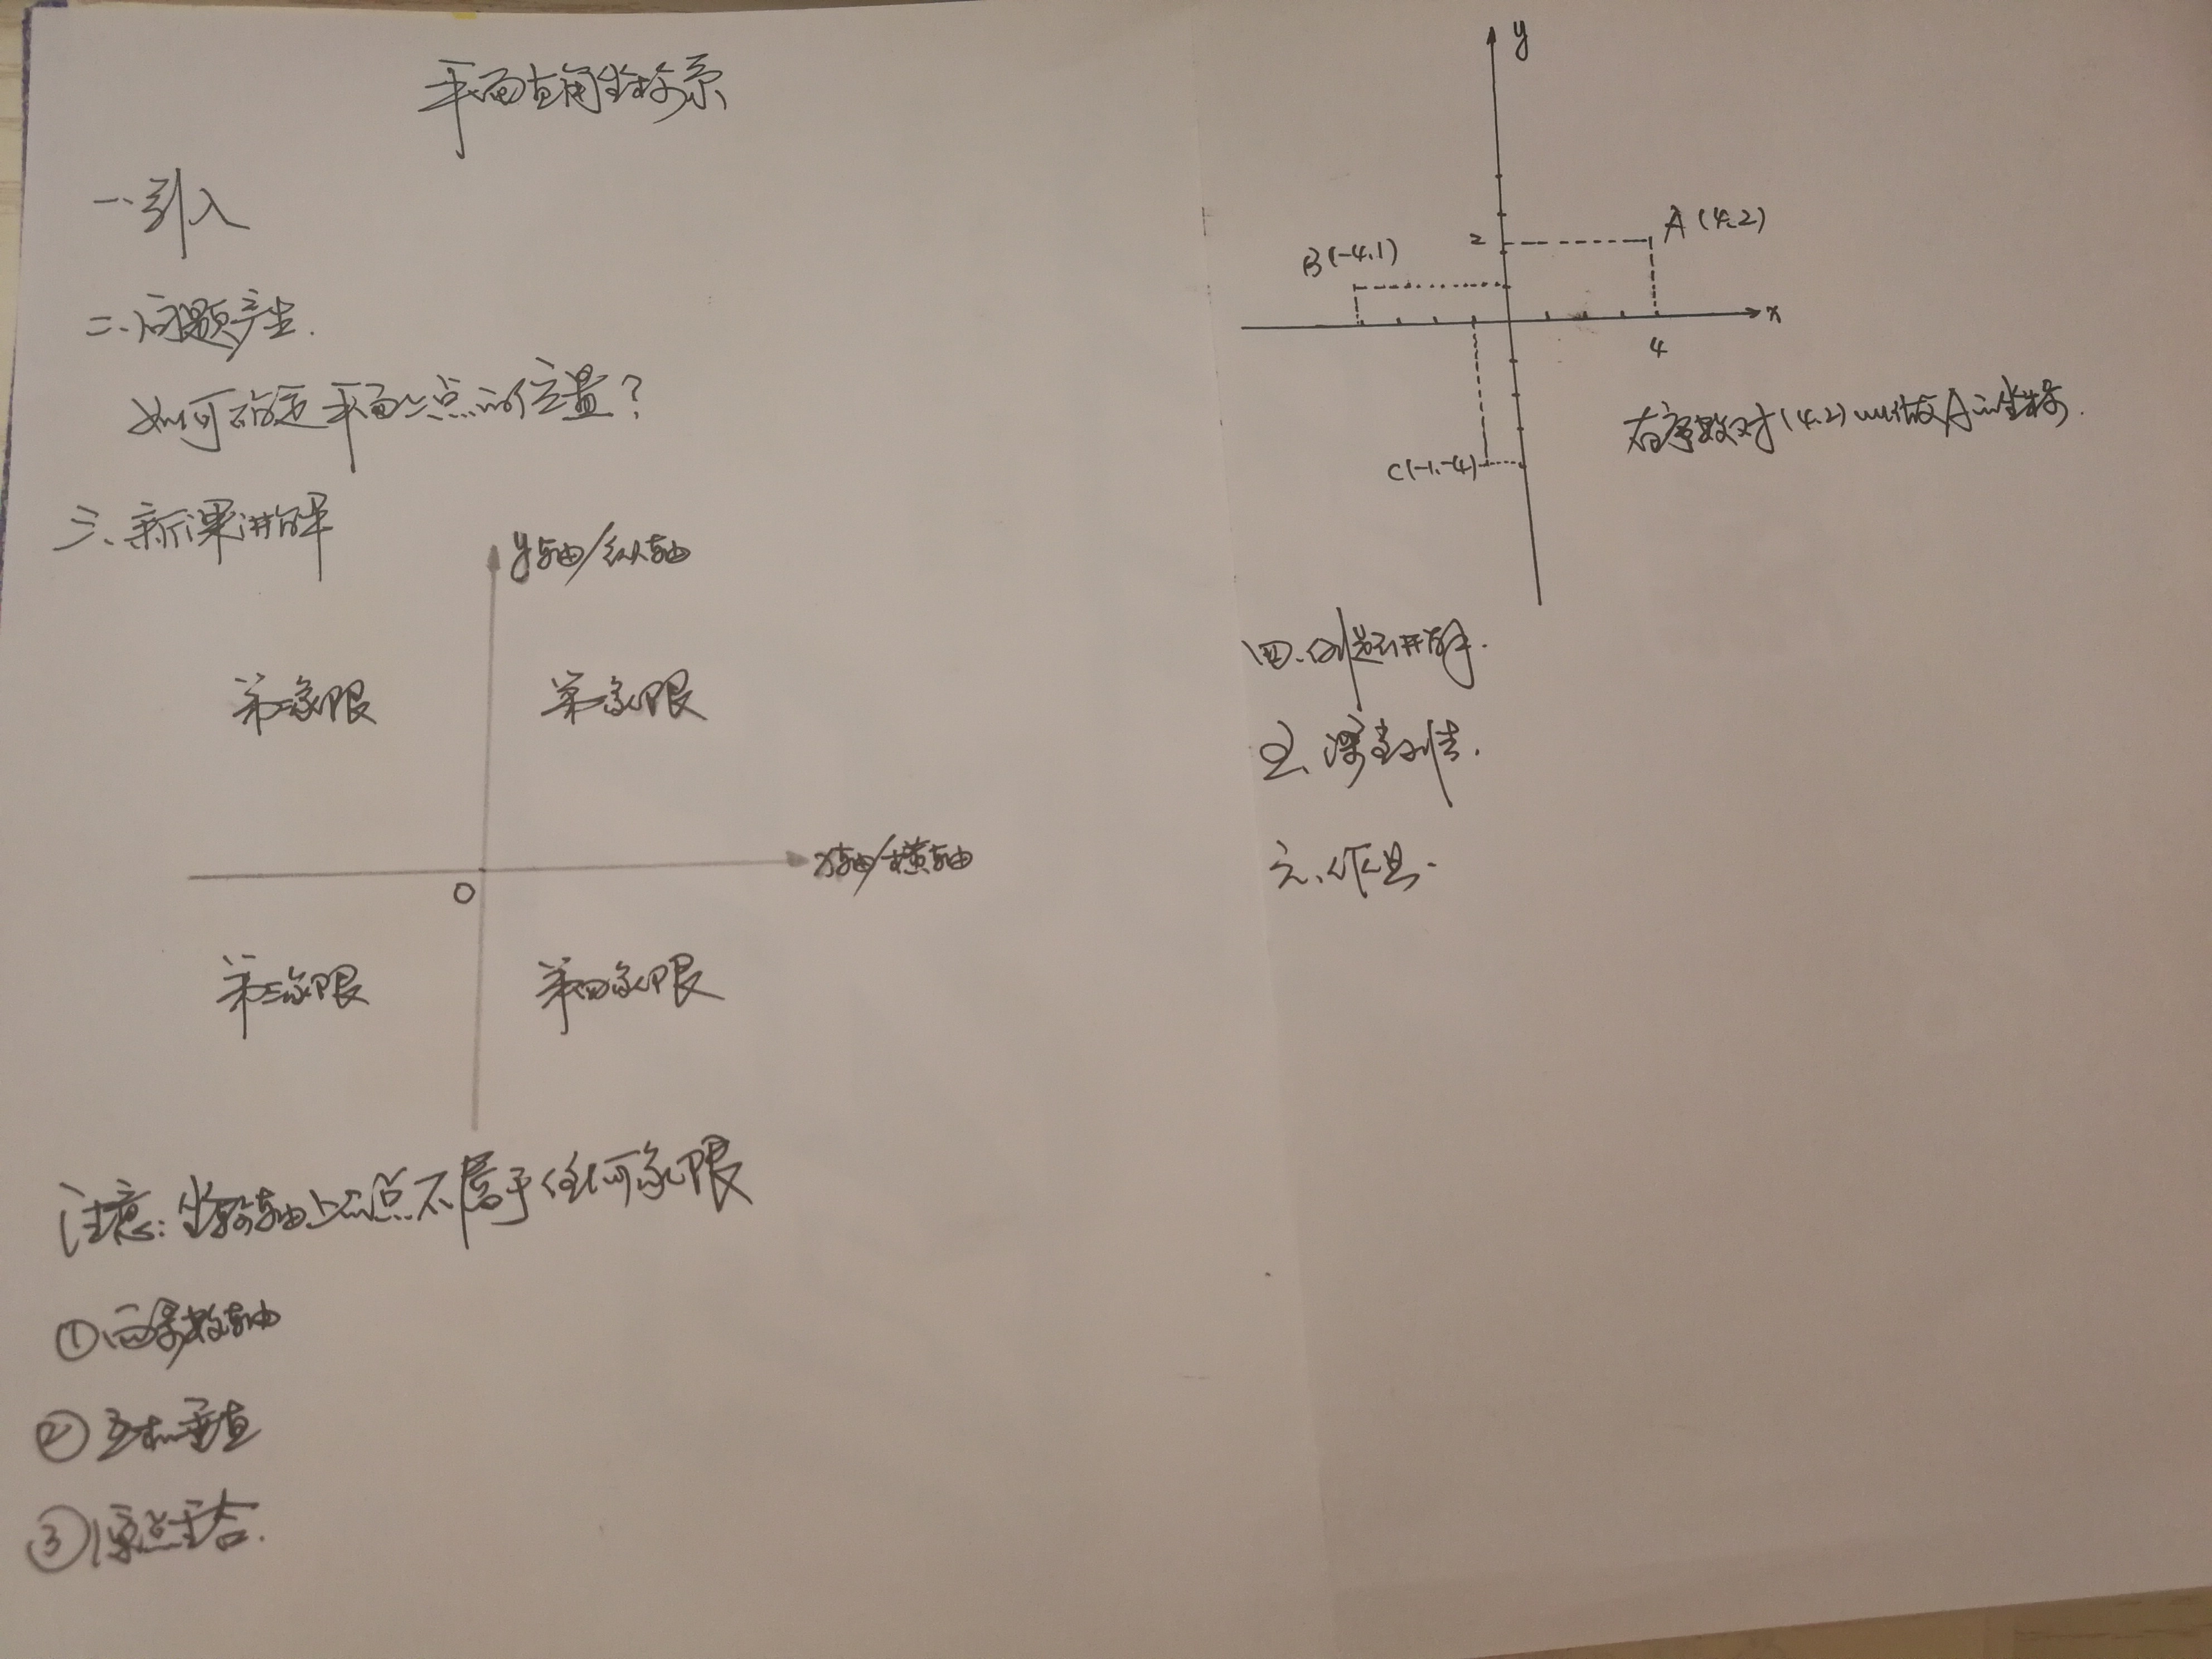 平面直角坐标系
一、引入
二、问题产生.
如何确定平面上点的位置?
三、新课讲解
y轴/纵轴
第二象限
第一象限
x轴/横轴
O
第三象限
第四象限
注意:坐标轴上的点不属于任何象限
①两条数轴
②互相垂直
③原点重合.
y
A(4,2)
2
B(-4,1)
x
4
有序数对(4,2)叫做A的坐标.
C(-1,-4)
四、例题讲解.
五、课堂小结.
六、作业.